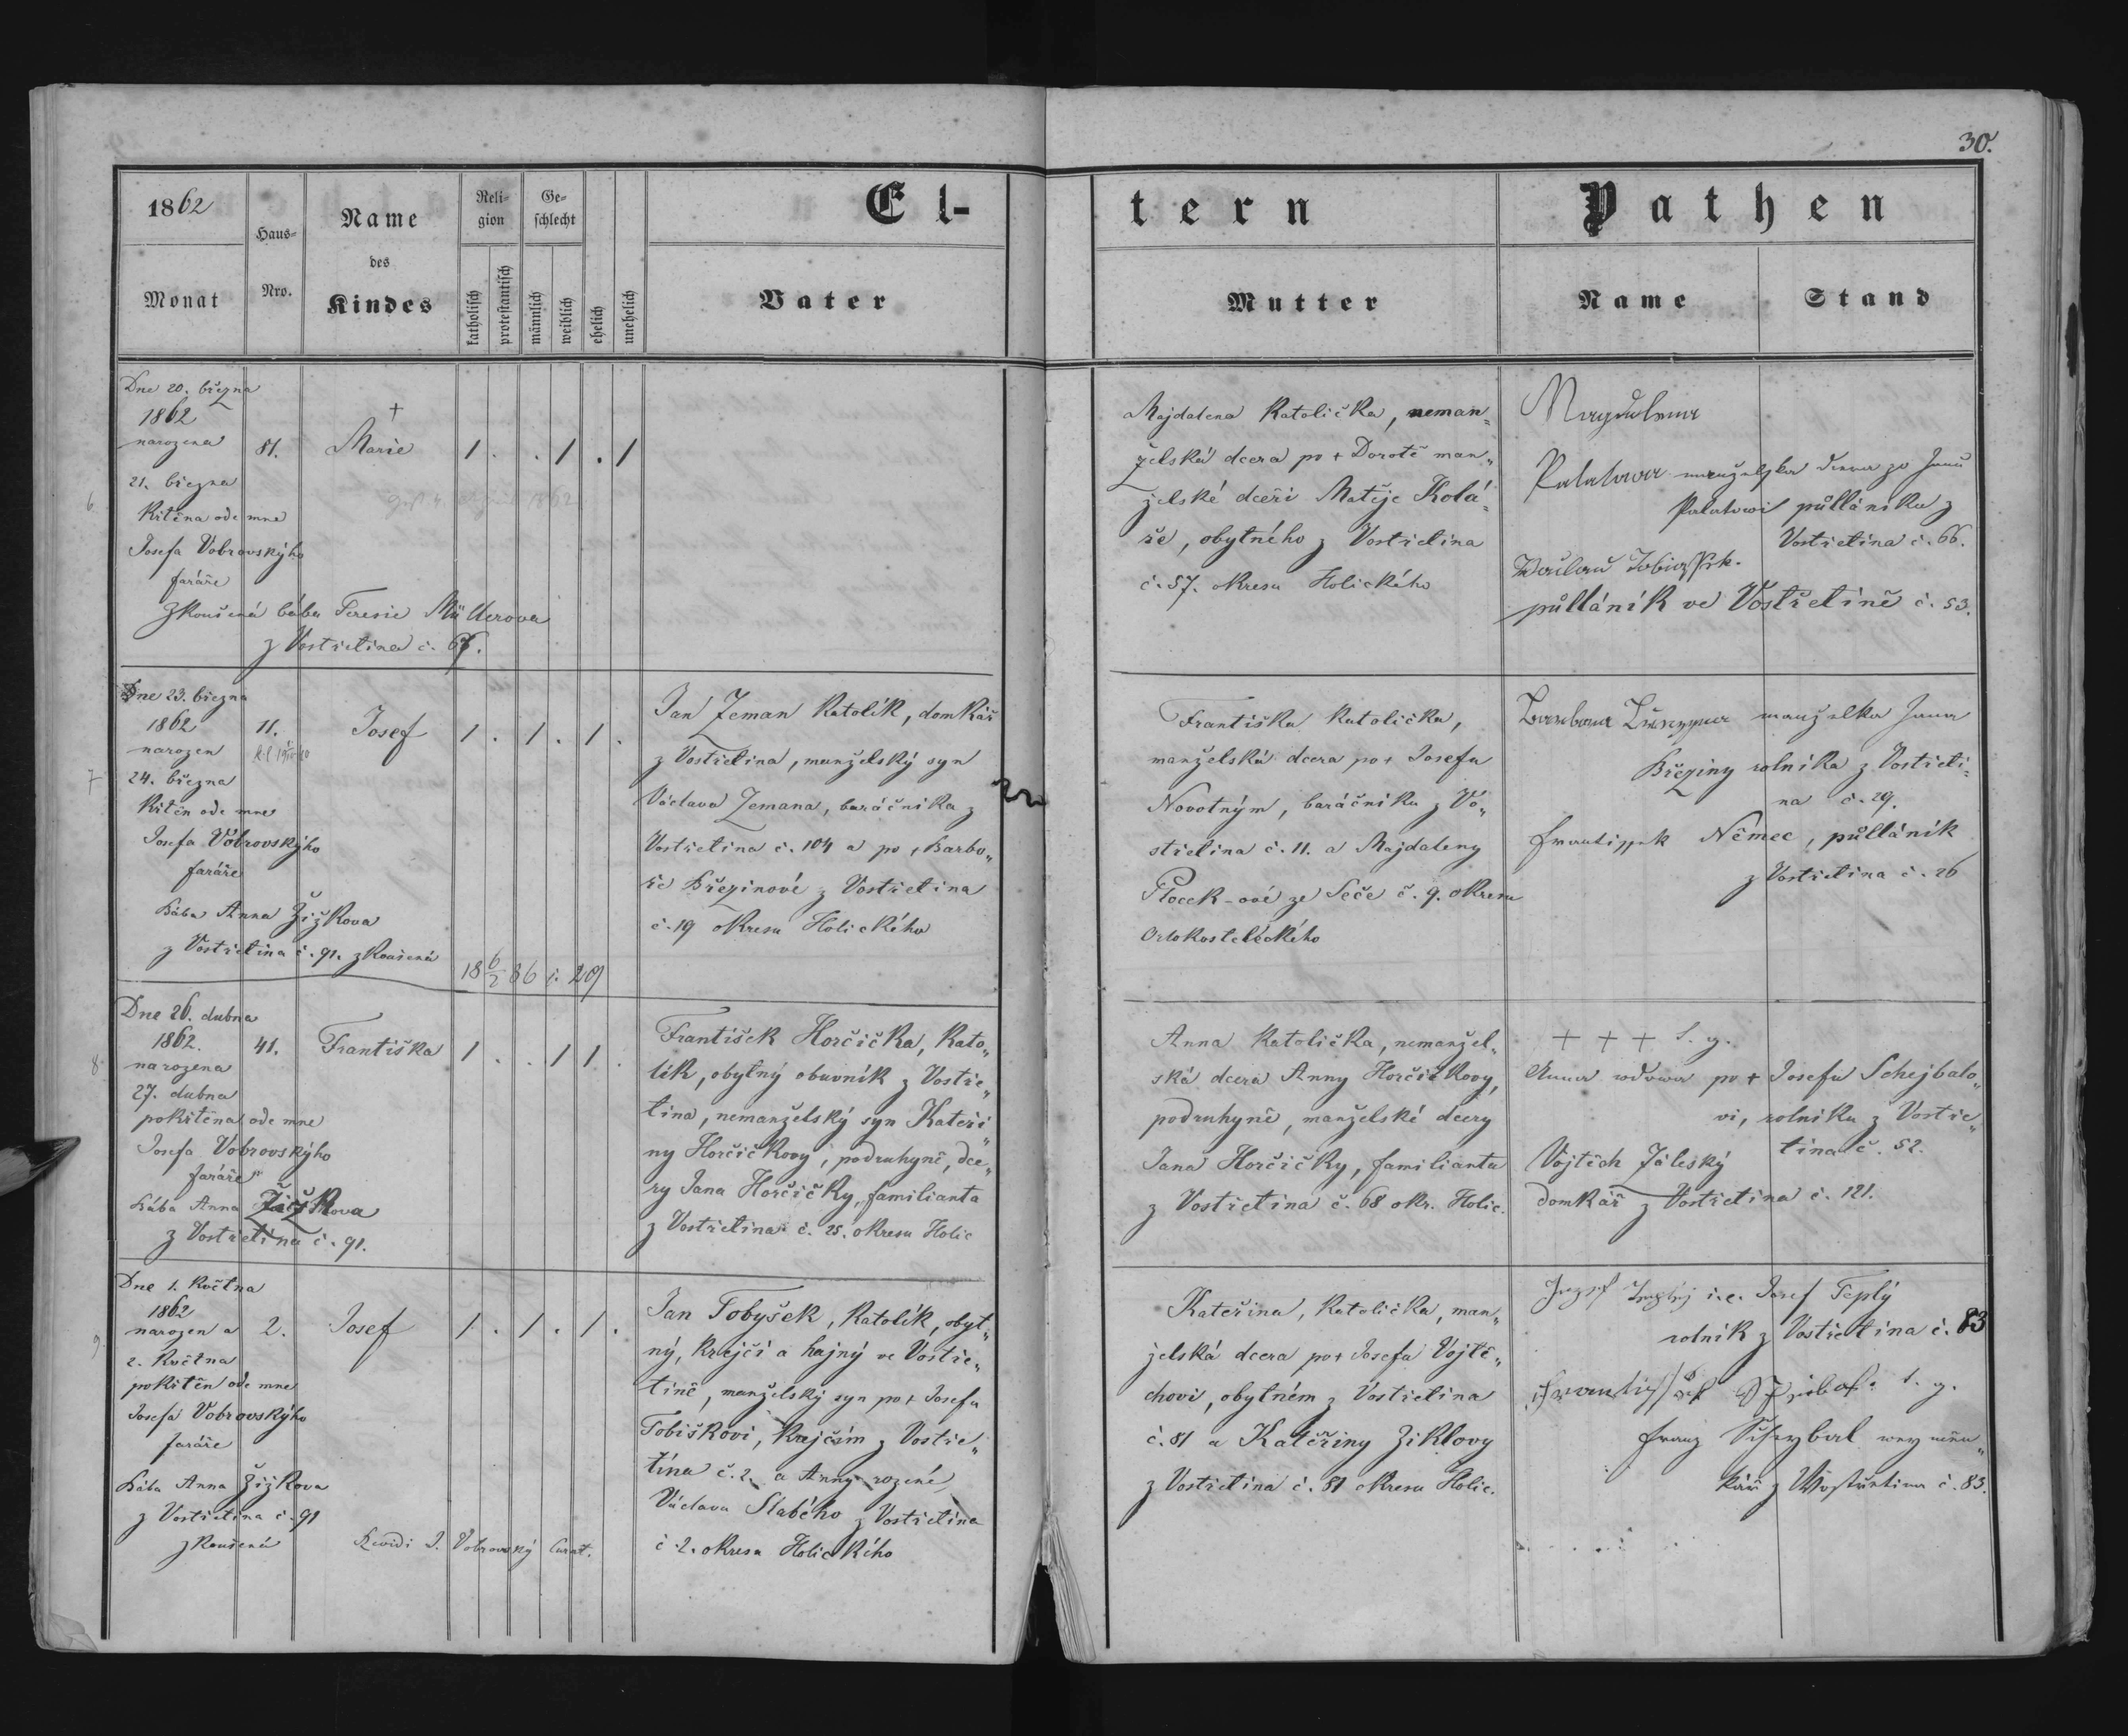 30.
1862
Haus-
Nro.
Name
des
Kindes
Reli-
gion
Ge-
schlecht
El-
tern
Pathen
Monat
katholisch
protestantisch
männlich
weiblich
ehelich
unehelich
Vater
Mutter
Name
Stand
Dne 20. března
1862
narozena
81.
+
Marie
1 . . 1 . 1
21. března
6
Křtěna ode mne
Josefa Vobrovskýho
faráře
Zkoušená bába Teresie Müllerova
z Vostřetina č.
Majdalena Katolička, neman-
želská dcera po + Dorotě man-
želské dceři Matěje Kolá-
ře, obytného z Vostřetina
č. 57. okresu Holického
Magdalena
Palatova
Palatovi půllánika z
Vostřetina č. 66.
půllánik ve Vostřetině č. 53.
Dne 23. března
1862
narozen
11.
Josef
1 . 1 . 1 .
7
24. března
Křtěn ode mne
Josefa Vobrovskýho
faráře
Bába Anna Žižkova
z Vostřetina č. 91. zkoušená
18 6/2 86 č. 29
Jan Zeman Katolík, domkář
z Vostřetina, manželský syn
Václava Zemana, baráčnika z
Vostřetina č. 104 a po + Barbo-
ře Březinové z Vostřetina
č. 19 okresu Holického
Františka Katolička,
manželská dcera po + Josefu
Novotným, baráčniku z Vo-
střetina č. 11. a Majdaleny
Plocek-ové ze Seče č. 9. okresu
Orlokosteleckého
manželka Jana
Březiny rolnika z Vostřeti-
na č. 29.
Frantissek Němec, půllánik
z Vostřetina č. 26
Dne 26. dubna
1862.
narozena
41.
Františka
1 . . 1 1 .
8
27. dubna
pokřtěna ode mne
Josefa Vobrovskýho
faráře
Bába Anna Žižkova
z Vostřetina č. 91.
František Horčička, Kato-
lík, obytný obuvník z Vostře-
tina, nemanželský syn Kateři-
ny Horčičkovy, podruhyně, dce-
ry Jana Horčičky, familianta
z Vostřetina č. 25. okresu Holic
Anna Katolička, nemanžel-
ská dcera Anny Horčičkovy,
podruhyně, manželské dcery
Jana Horčičky, familianta
z Vostřetina č. 68 okr. Holic.
+ + +
Anna vdova po + Josefu Schejbalo-
vi, rolniku z Vostře-
tina č. 52.
Vojtěch Jáleský
domkář z Vostřetina č. 121.
Dne 1. Května
1862
narozen a
2.
Josef
1 . 1 . 1 .
9
2. Května
pokřtěn ode mne
Josefa Vobrovskýho
faráře
Bába Anna Žižkova
z Vostřetina č. 91
zkoušená
J. Vobrovský
Jan Tobyšek, Katolík, obyt-
ný, Krejčí a hajný ve Vostře-
tině, manželský syn po + Josefu
Tobiškovi, Krejčím z Vostře-
tína č. 2. a Anny rozené
Václava Slabého z Vostřetina
č. 2. okresu Holického
Kateřina, Katolička, man-
želská dcera po + Josefu Vojtě-
chovi, obytném z Vostřetina
č. 81 a Kateřiny Ziklovy
z Vostřetina č. 81 okresu Holic.
i.e. Josef Teplý
rolník z Vostřetina č. 83
Franz Scheybal
č. 83.